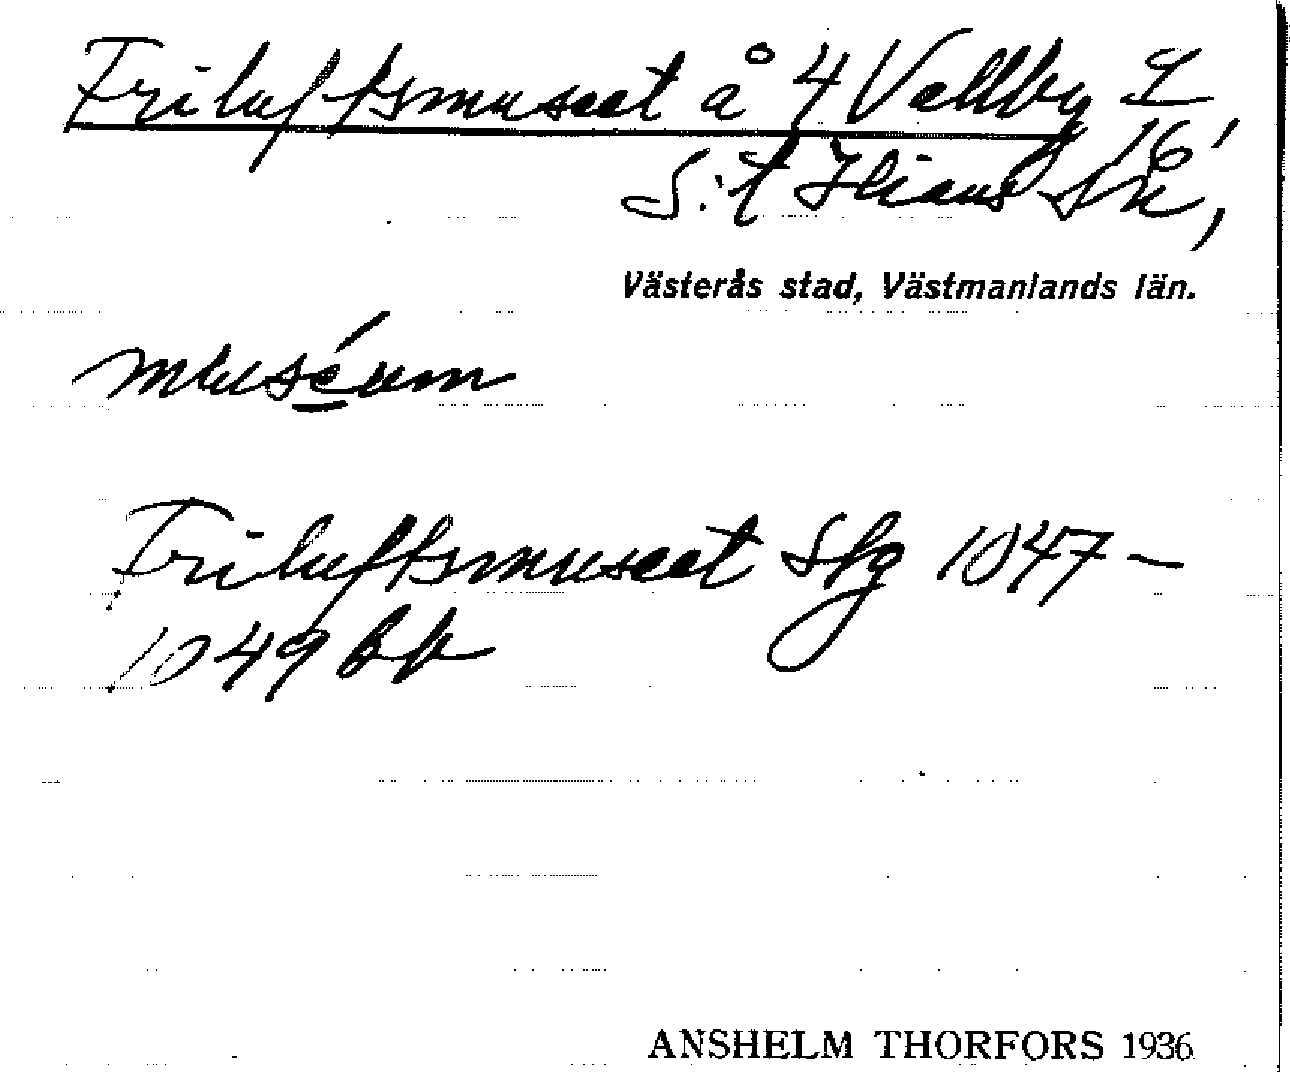 Friluftsmuseet å 4 Vallby L
16,
S:t Ilians sn,
Västerås stad, Västmanlands län.
muséum
Friluftsmuseet Stg 1047 –
1049 bb
ANSHELM THORFORS 1936